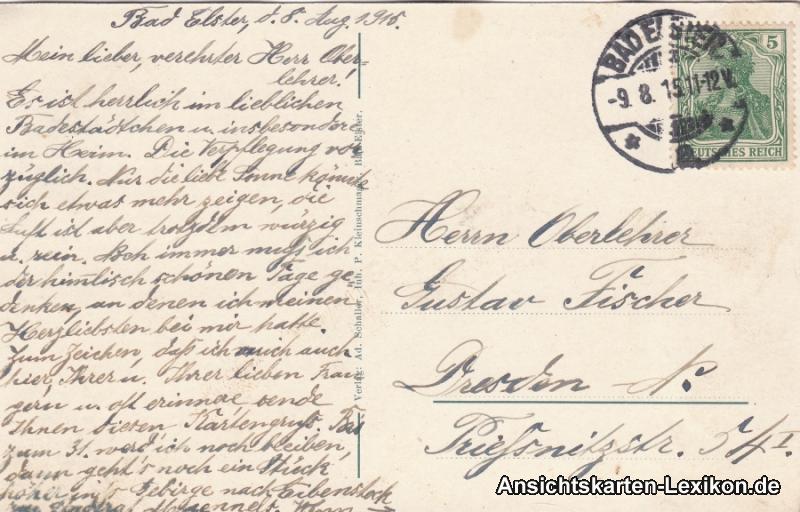 Bad Elster, d. 8. Aug. 1915.
Mein lieber, verehrter Herr Ober-
lehrer!
Es ist herrlich im lieblichen
Badestädtchen u. insbesondere
im Heim. Die Verpflegung vor
züglich. Nur die liebe Sonne könnte
sich etwas mehr zeigen, die
Luft ist aber trotzdem würzig
u. rein. Noch immer muß ich
der himmlisch schönen Tage ge
denken, an denen ich meinen
Herzliebsten bei mir hatte.
Zum Zeichen, daß ich mich auch
hier Ihrer u. Ihrer lieben Frau
gern u. oft erinnre sende
Ihnen diesen Kartengruß. Bis
zum 31. werd ich noch bleiben,
dann geht's noch ein Stück
höher in's Gebirge nach Eibenstock
Verlag: Ad. Schaller, Inh. P. Kleinschmager, Bad Elster.
BAD ELSTER
-9. 8. 15.11-12V.
5
DEUTSCHES REICH
Herrn Oberlehrer
Gustav Fischer
Dresden N.
Prießnitzstr. 54 I.
Ansichtskarten-Lexikon.de